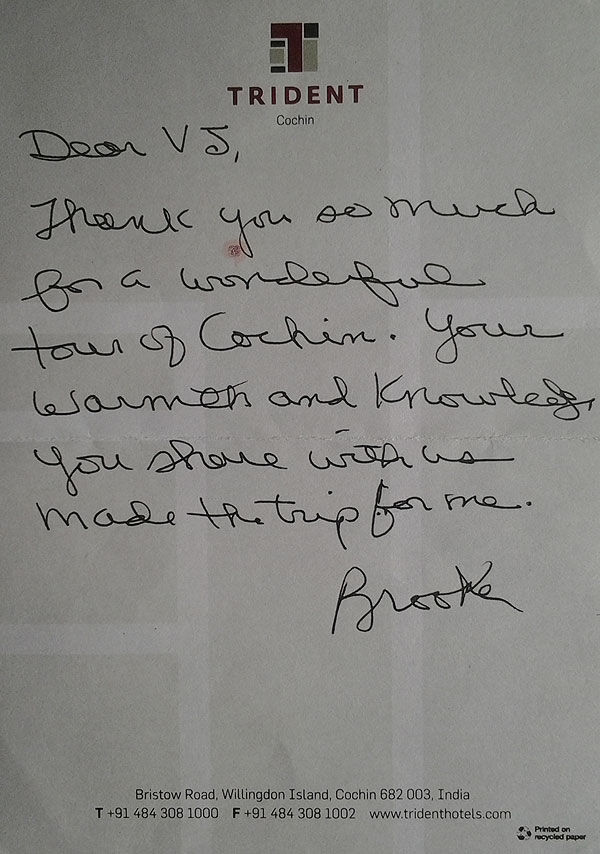 TRIDENT
Cochin
Dear VJ,
Thank you so much
for a wonderful
tour of Cochin. Your
warmth and knowledge
you share with us
made the trip for me.
Brooke
Bristow Road, Willingdon Island, Cochin 682 003, India
T +91 484 308 1000 F +91 484 308 1002 www.tridenthotels.com
Printed on
recycled paper